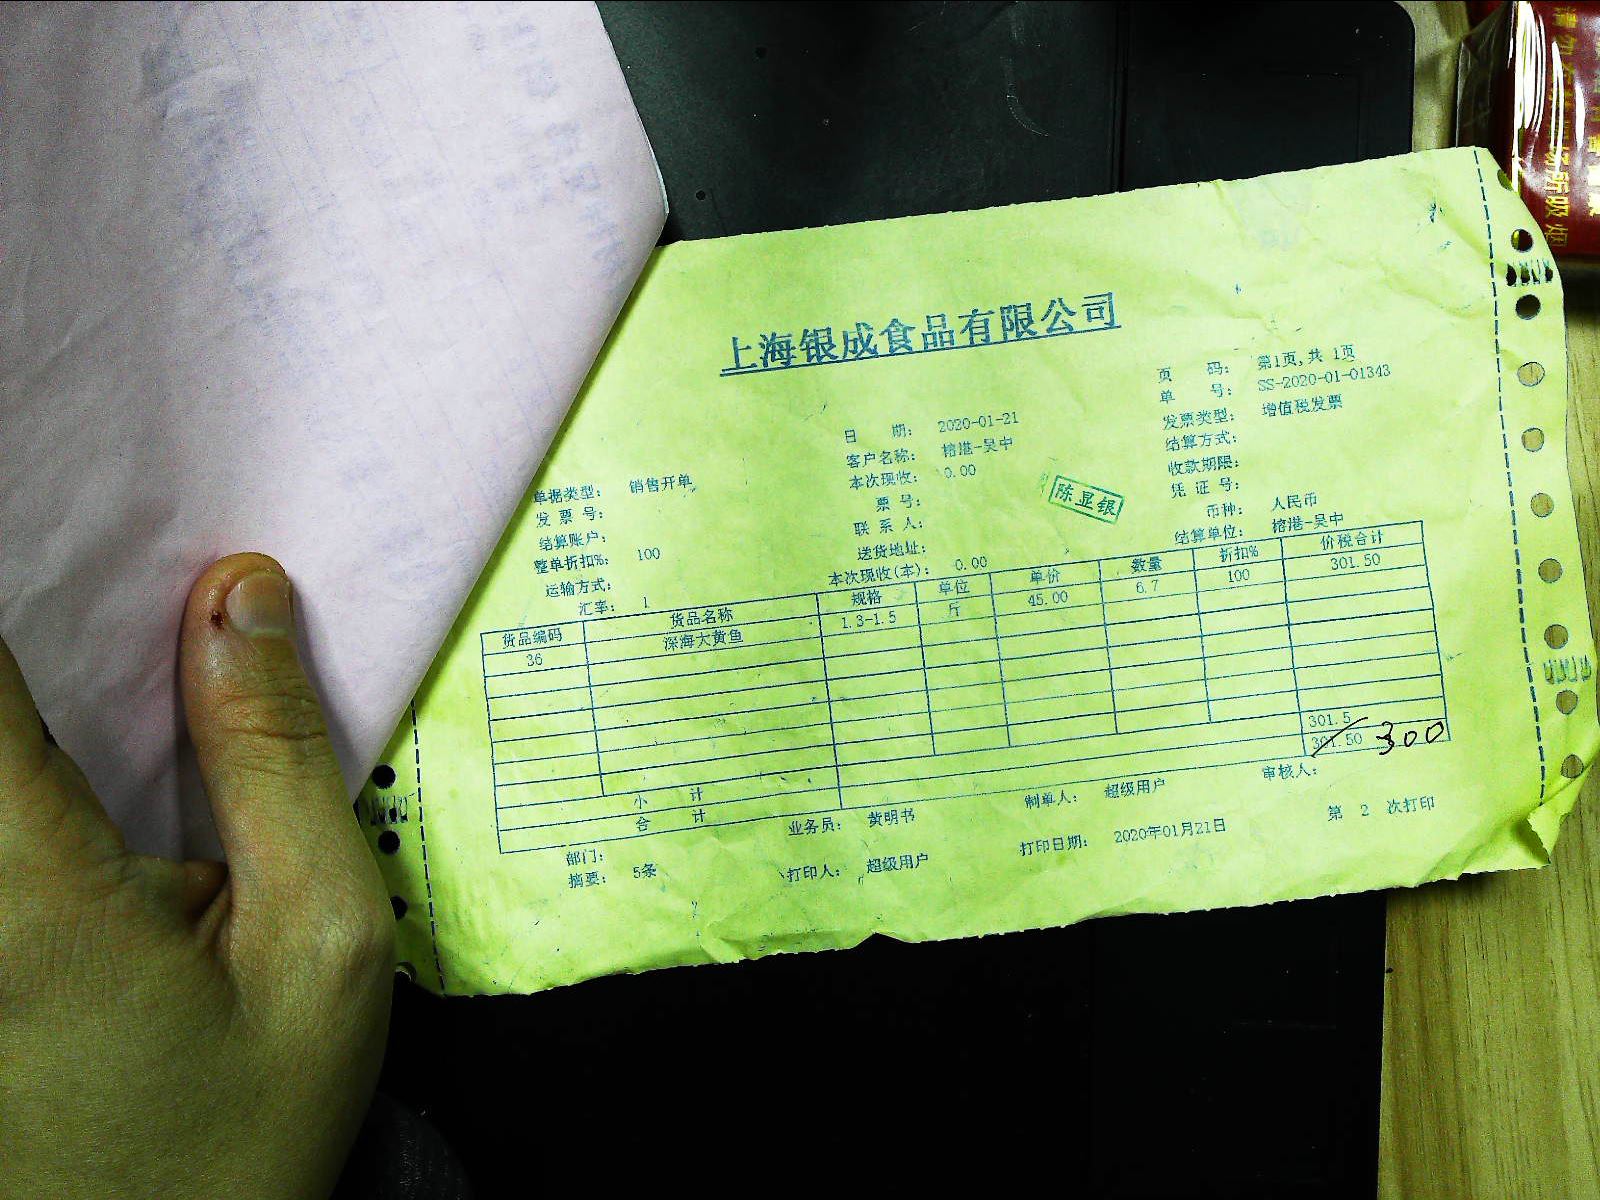 上海银成食品有限公司
页 码： 第1页,共 1页
单 号： SS-2020-01-01343
日 期： 2020-01-21
发票类型： 增值税发票
客户名称： 榕港-吴中
结算方式：
单据类型： 销售开单
本次现收： 0.00
收款期限：
发 票 号：
票 号：
陈显银
凭 证 号：
结算账户：
联 系 人：
币种： 人民币
整单折扣%： 100
送货地址：
结算单位： 榕港-吴中
运输方式：
本次现收(本)： 0.00
汇率： 1
货品编码 货品名称 规格 单位 单价 数量 折扣% 价税合计
36 深海大黄鱼 1.3-1.5 斤 45.00 6.7 100 301.50
小 计 301.5
合 计 301.50 300
部门： 业务员： 黄明书 制单人： 超级用户 审核人：
摘要： 5条 打印人： 超级用户 打印日期： 2020年01月21日 第 2 次打印